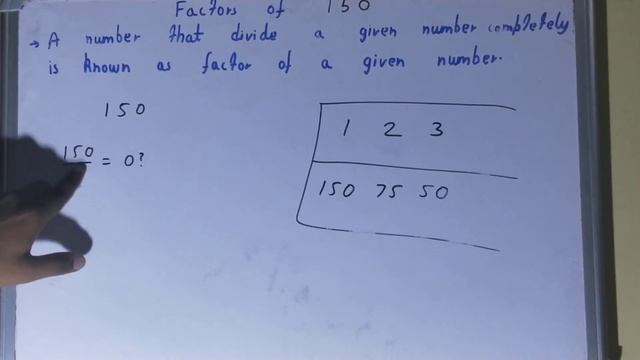 Factors of 150
→ A number that divide a given number completely
is known as factor of a given number.
150
150 = 0?
1 2 3
150 75 50